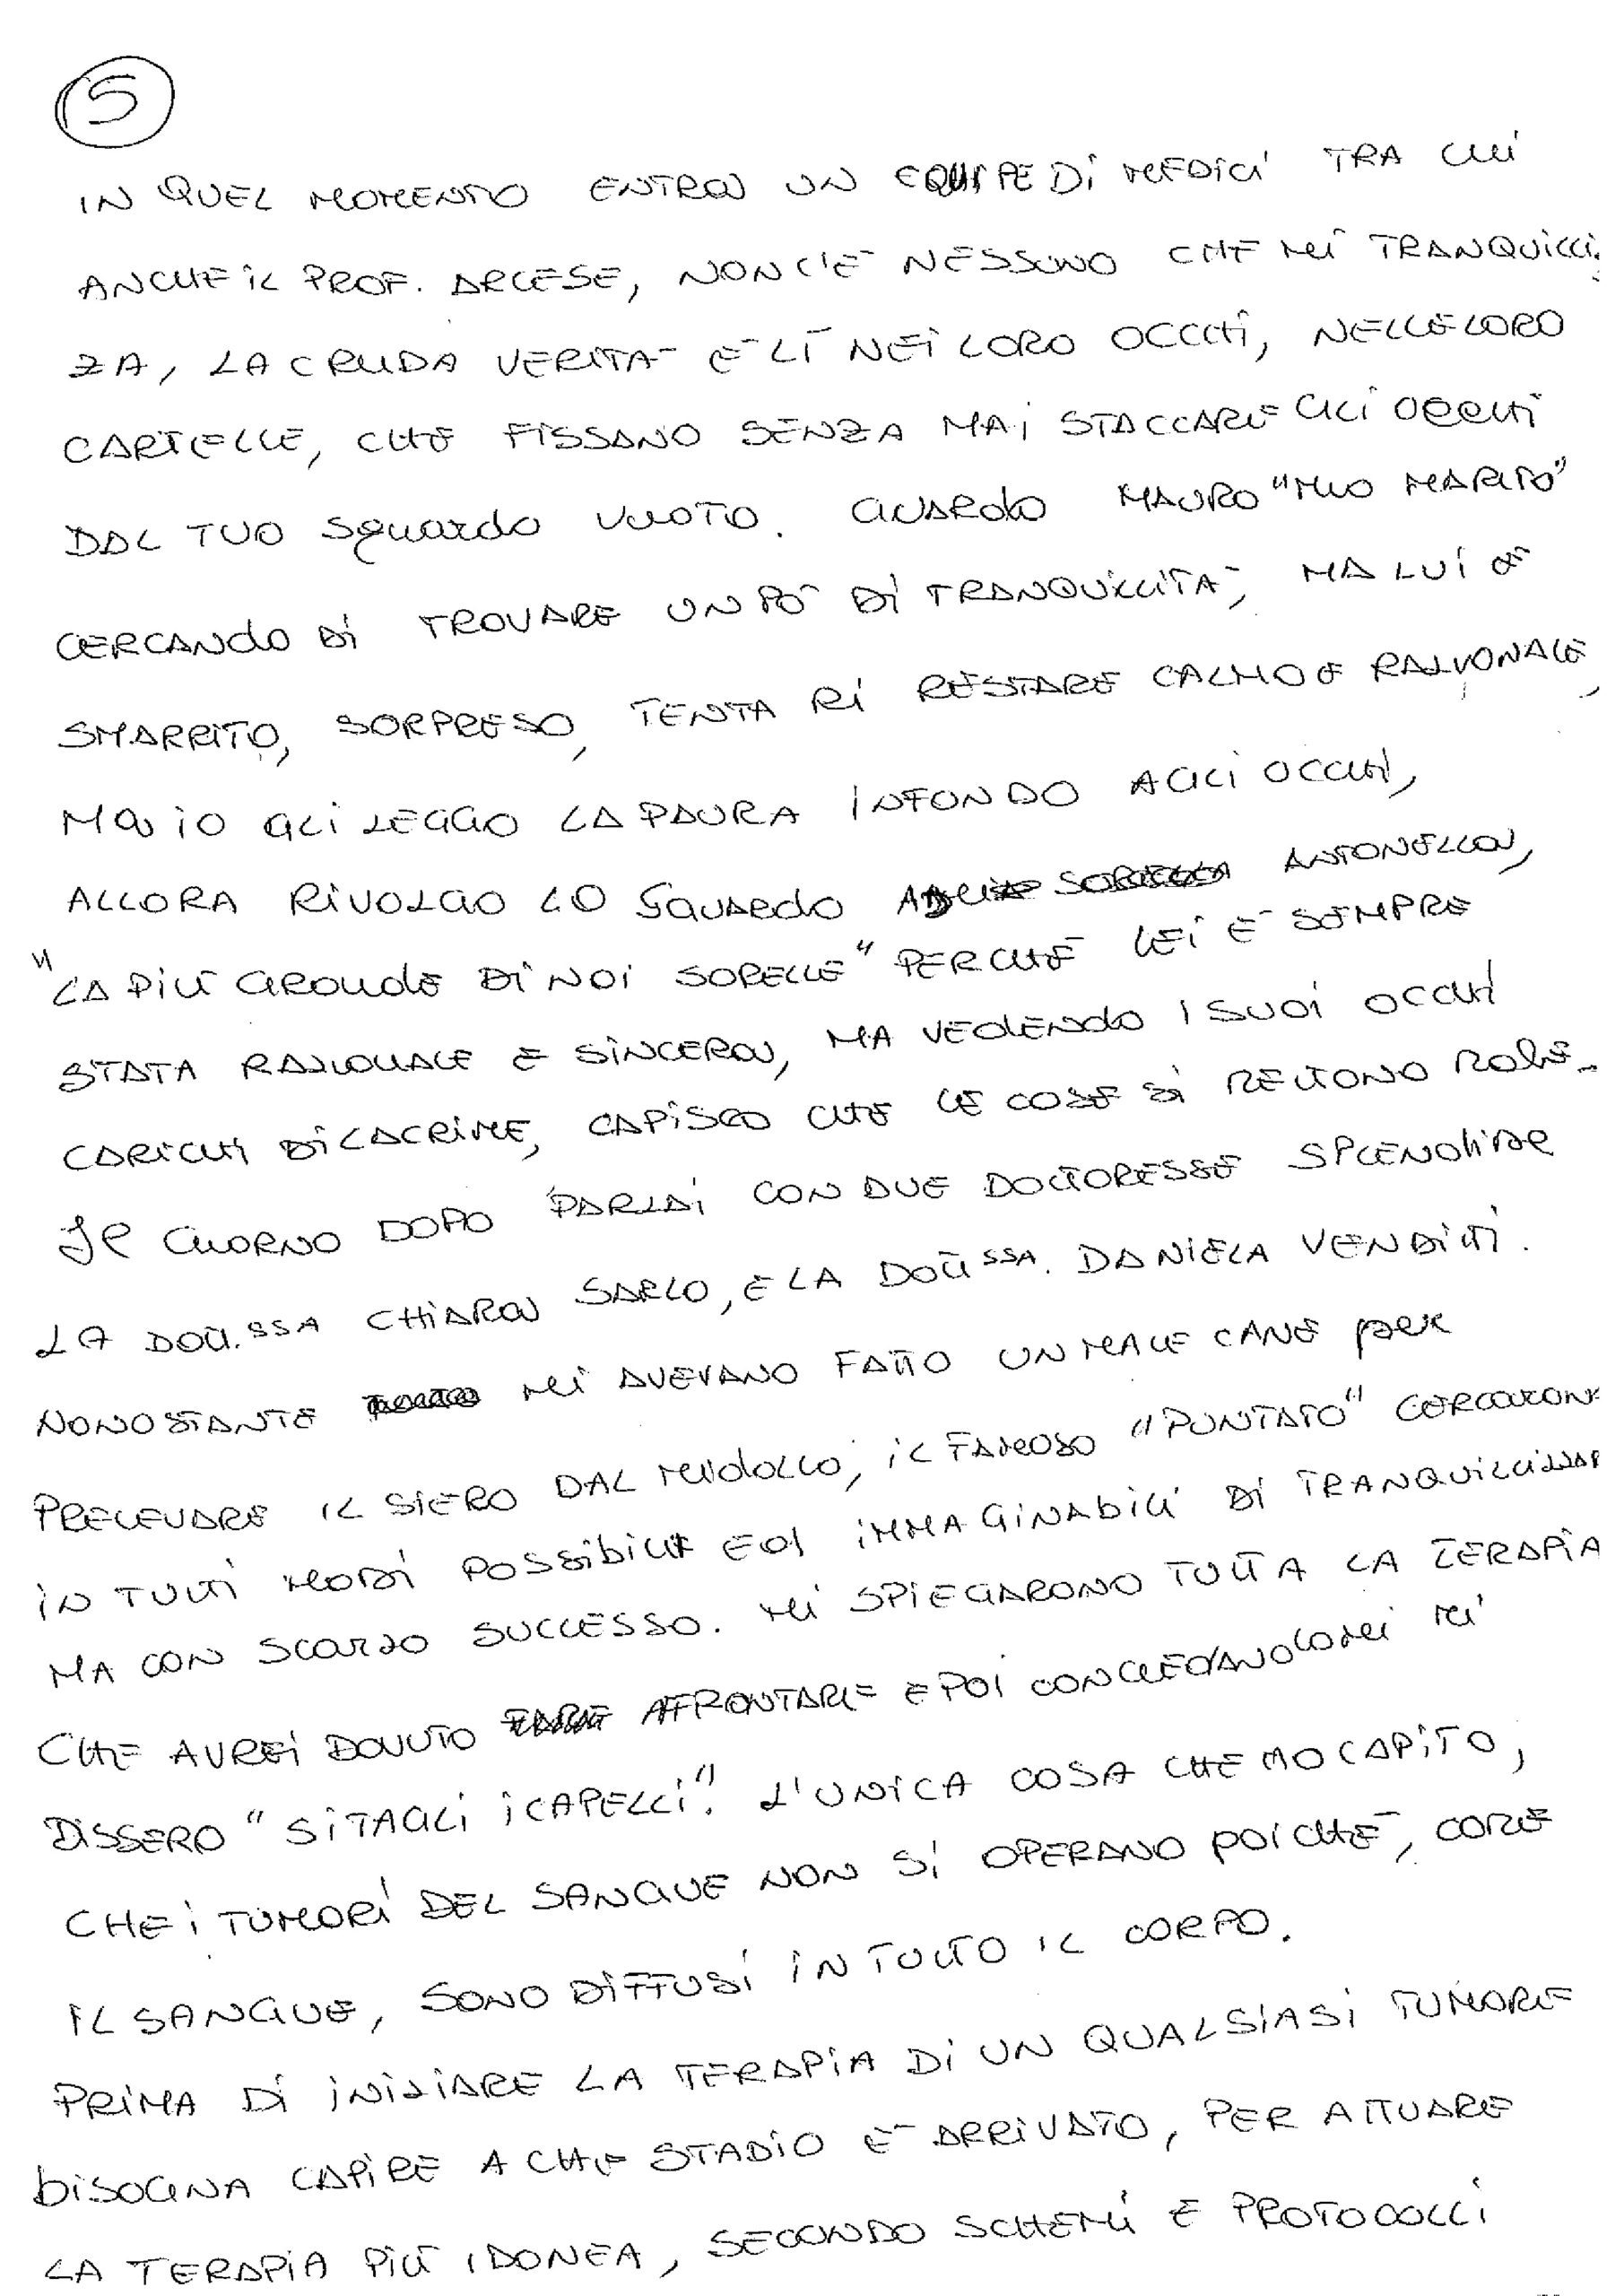 5
IN QUEL MOMENTO ENTRA UN EQUIPE Di MEDICI TRA CUI
ANCHE iL PROF. ARCESE, NON C'E' NESSUNO CHE Mi TRANQUILLi
ZZA, LA CRUDA VERITA' E' LÌ NEi LORO OCCHi, NELLE LORO
CARTELLE, CHE FISSANO SENZA MAi STACCARE GLi OCCHi
DAL TUO sguardo VUOTO. GUARDO MAURO "MIO MARITO"
CERCANdO Di TROVARE UN PO' Di TRANQUILLITA', MA LUi E'
SMARRITO, SORPRESO, TENTA Ri RESTARE CALMO E RAZIONALE,
MA iO GLi LEGGO LA PAURA iNFONDO AGLi OCCHi,
ALLORA RiVOLGO LO SGUARdO A ANTONELLA,
"LA PIÙ GRANdE Di NOi SORELLE" PERCHE' LEi E' SEMPRE
STATA RAZIONALE E SiNCERA, MA VEdENdO I SUOi OCCHi
CARICHi Di LACRIME, CAPiSCO CHE LE COSE Si METTONO MALE.
Il GIORNO DOPO PARLAi CON DUE DOTTORESSE SPLENdIDE
LA DOTT.SSA CHiARA SARLO, E LA DOTTSSA. DANiELA VENDiTTi.
NONOSTANTE Mi AVEVANO FATTO UN MALE CANE per
PRELEVARE IL SIERO DAL MIdOLLO, iL FAMOSO "PUNTATO" CERCARONO
iN TUTTi MODi POSSibiLi ED iMMAGiNAbiLi Di TRANQUiLLIZZAR
MA CON SCARSO SUCCESSO. Mi SPiEGARONO TUTTA LA TERAPiA
CHE AVREi DOVUTO AFFRONTARE E POi CONGEdANdOMi Mi
DISSERO "Si TAGLi i CAPELLi". L'UNiCA COSA CHE HO CAPiTO,
CHE i TUMORi DEL SANGUE NON Si OPERANO POICHE', COME
iL SANGUE, SONO DiFFUSi iN TUTTO IL CORPO.
PRiMA Di iNiZiARE LA TERAPiA Di UN QUALSIASi TUMORE
biSOGNA CAPiRE A CHE STADiO E' ARRiVATO, PER ATTUARE
LA TERAPiA PIÙ IDONEA, SECONDO SCHEMi E PROTOCOLLi